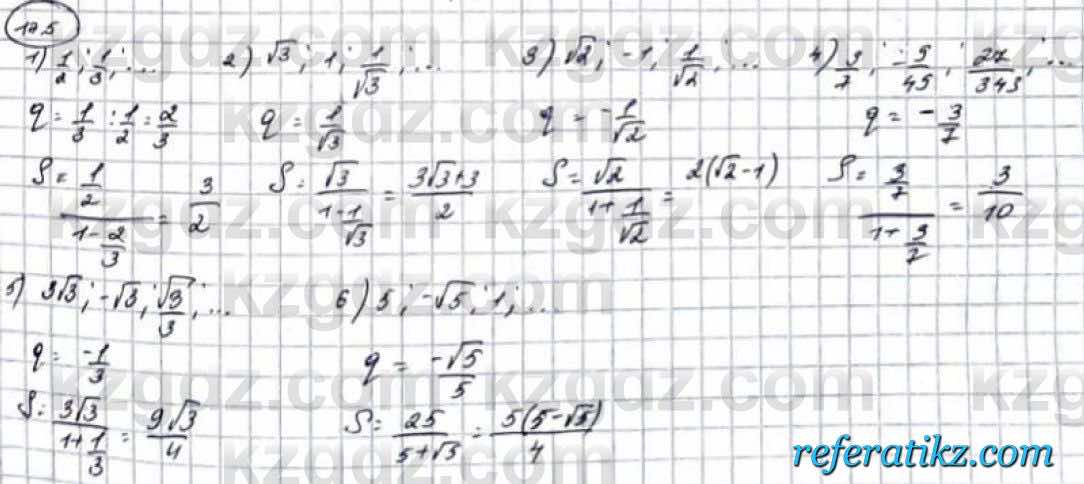 125
1) 1/2; 1/3; ... 2) √3; 1; 1/√3; ... 3) √2; -1; 1/√2; ... 4) 3/7; -9/45; 27/343; ...
q = 1/3 : 1/2 = 2/3 q = 1/√3 q = -1/√2 q = -3/7
S = (1/2)/(1-2/3) = 3/2 S = √3/(1-1/√3) = (3√3+3)/2 S = √2/(1+1/√2) = 2(√2-1) S = (3/7)/(1+3/7) = 3/10
5) 3√3; -√3; √3/3; ... 6) 5; -√5; 1; ...
q = -1/3 q = -√5/5
S = 3√3/(1+1/3) = 9√3/4 S = 25/(5+√5) = 5(5-√5)/4
kzgdz.com
referatikz.com